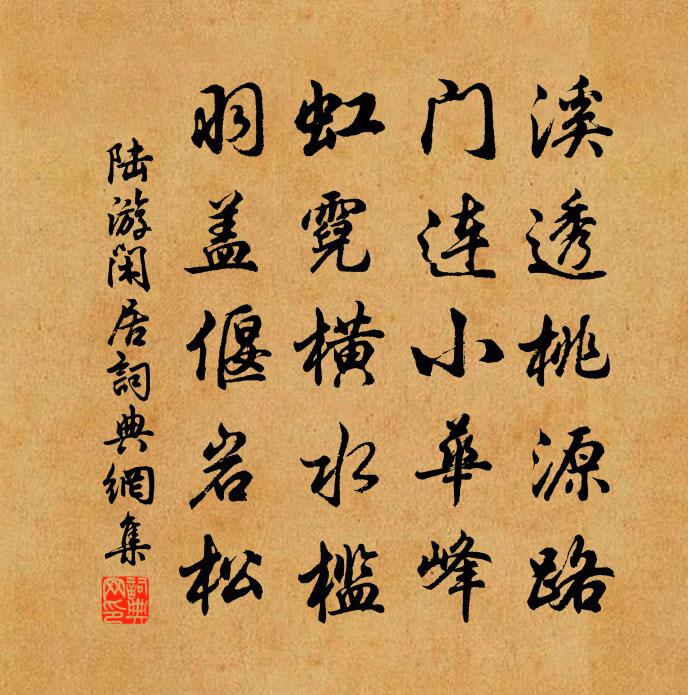 溪透桃源路
门连小华峰
虹霓横水槛
羽盖偃岩松
陆游闲居詞典網集
詞典网印